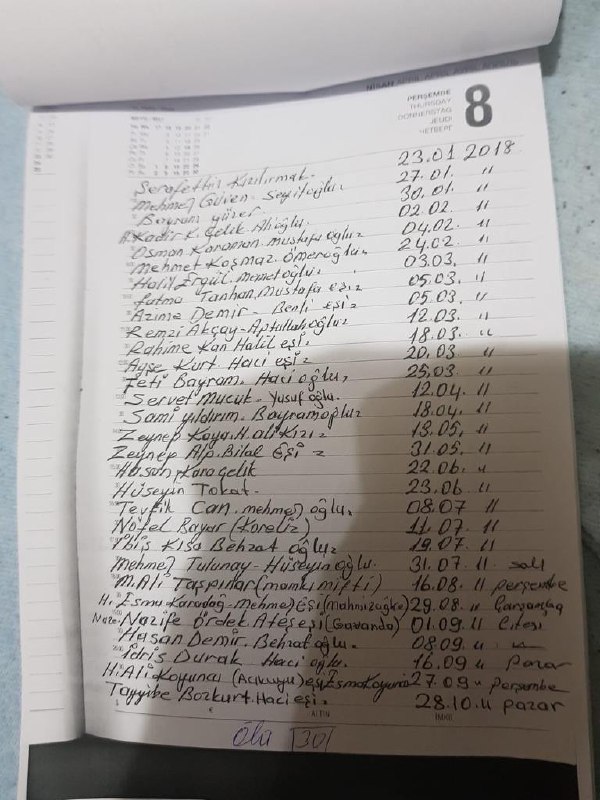 PERŞEMBE
THURSDAY
DONNERSTAG
JEUDI
ЧЕТВЕРГ
8
Şerafettin Kızılırmak. 23.01 2018
Mehmet Güven Seyitoğlu 27.01. "
Bayram yüzer 30.01. "
A.Kadir K. Çelik Alioğlu. 02.02. "
Osman Karaman Mustafa oğlu 04.02. "
Mehmet Koşmaz. Ömeroğlu 24.02. "
Halil Ergül. Memetoğlu. 03.03. "
Fatma Tanhan. Mustafa eşi 05.03. "
Azime Demir - Benli eşi 05.03. "
Remzi Akçay - Aptullahoğlu 12.03. "
Rahime Kan Halil eşi 18.03. "
Ayşe Kurt Hacı eşi 20.03 "
Feti Bayram. Hacı oğlu, 25.03 "
Servet Mucuk - Yusuf oğlu. 12.04. "
Sami yıldırım - Bayramoğlu 18.04. "
Zeynep Kaya. H. Ali Kızı 13.05. "
Zeynep Alp. Bilal Eşi 31.05. "
Hasan Karaçelik 22.06. "
Hüseyin Tokat. 23.06 "
Tevfik Can. mehmet oğlu. 08.07 "
Nofel Bayar (Koreliz) 11.07. "
İbiş Kısa Behzat oğlu 19.07. "
Mehmet Tulunay - Hüseyinoğlu. 31.07. " salı
M.Ali Taşpınar (mamkı mifti) 16.08. " perşembe
H. Esma Karadağ - Mehmet Eşi 29.08. " Çarşamba
Nazife Ördek Ateş eşi (Gavando) 01.09. " C.tesi
Hasan Demir. Behzat oğlu. 08.09. "
İdris Durak Hacı oğlu. 16.09 " Pazar
H.Ali Koyuncu eşi Esma Koyuncu 27.09 " Perşembe
Tayyibe Bozkurt. Hacı eşi. 28.10. " pazar
ALTIN
Ölü 30